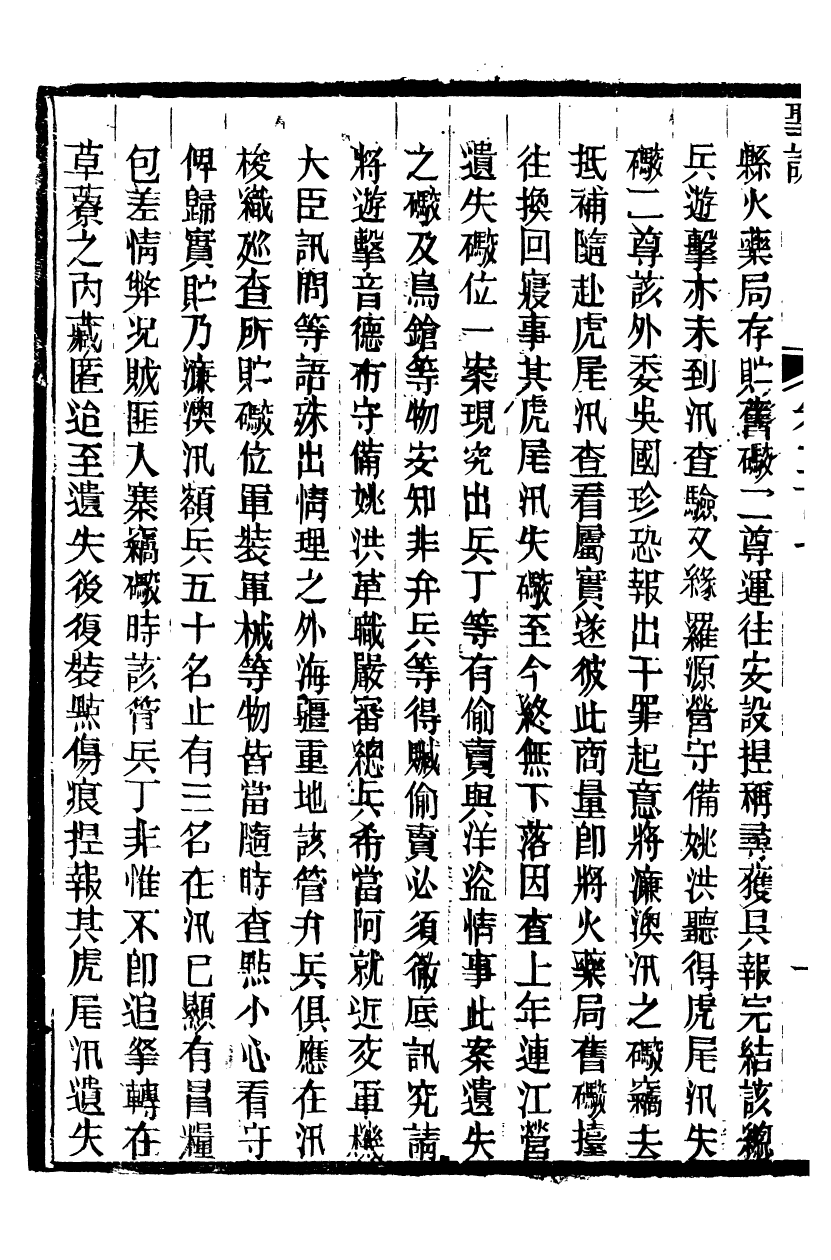 聖訓
縣火藥局存貯舊礮二尊運往安設捏稱尋獲具報完結該總
兵遊擊亦未到汛查驗又緣羅源營守備姚洪聽得虎尾汛失
礮二尊該外委吳國珍恐報出干罪起意將濂澳汛之礮竊去
抵補隨赴虎尾汛查看屬實遂彼此商量卽將火藥局舊礮擡
往換回寢事其虎尾汛失礮至今終無下落因查上年連江營
遺失礮位一案現究出兵丁等有偷賣與洋盜情事此案遺失
之礮及鳥鎗等物安知非弁兵等得贓偷賣必須徹底訊究請
將遊擊音德布守備姚洪革職嚴審總兵希當阿就近交軍機
大臣訊問等語殊出情理之外海疆重地該管弁兵俱應在汛
梭織廵查所貯礮位軍裝軍械等物皆當隨時查㸃小心看守
俾歸實貯乃濂澳汛額兵五十名止有三名在汛已顯有冒糧
包差情弊況賊匪入寨竊礮時該管兵丁非惟不卽追拏轉在
草藔之內藏匿迨至遺失後復裝㸃傷痕捏報其虎尾汛遺失